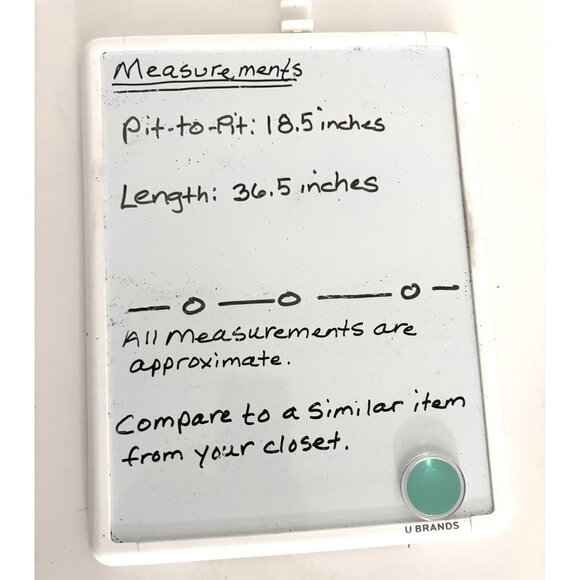 Measurements
Pit-to-Pit: 18.5 inches
Length: 36.5 inches
All measurements are
approximate.
Compare to a similar item
from your closet.
U BRANDS